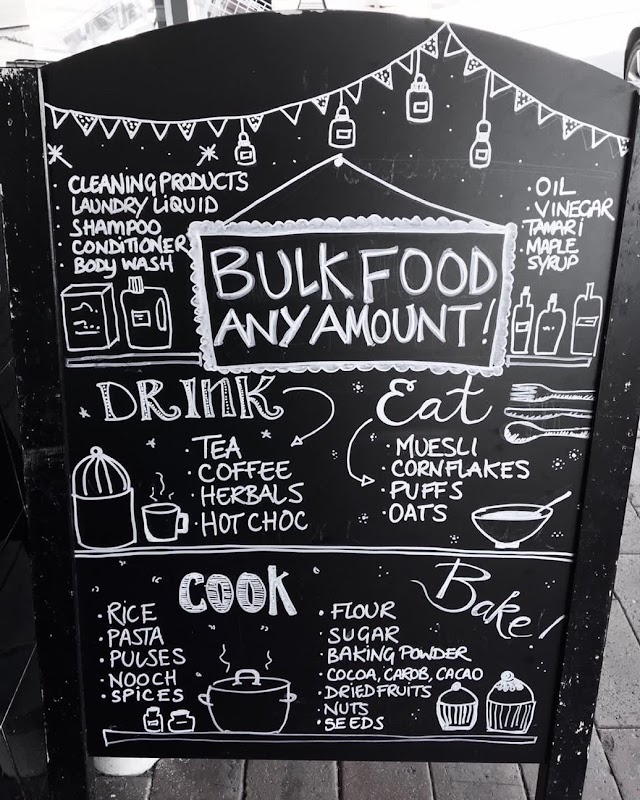 CLEANING PRODUCTS
LAUNDRY LIQUID
SHAMPOO
CONDITIONER
BODY WASH
BULK FOOD
ANY AMOUNT!
OIL
VINEGAR
TAMARI
MAPLE
SYRUP
DRINK
TEA
COFFEE
HERBALS
HOT CHOC
Eat
MUESLI
CORNFLAKES
PUFFS
OATS
COOK
RICE
PASTA
PULSES
NOOCH
SPICES
Bake!
FLOUR
SUGAR
BAKING POWDER
COCOA, CAROB, CACAO
DRIED FRUITS
NUTS
SEEDS